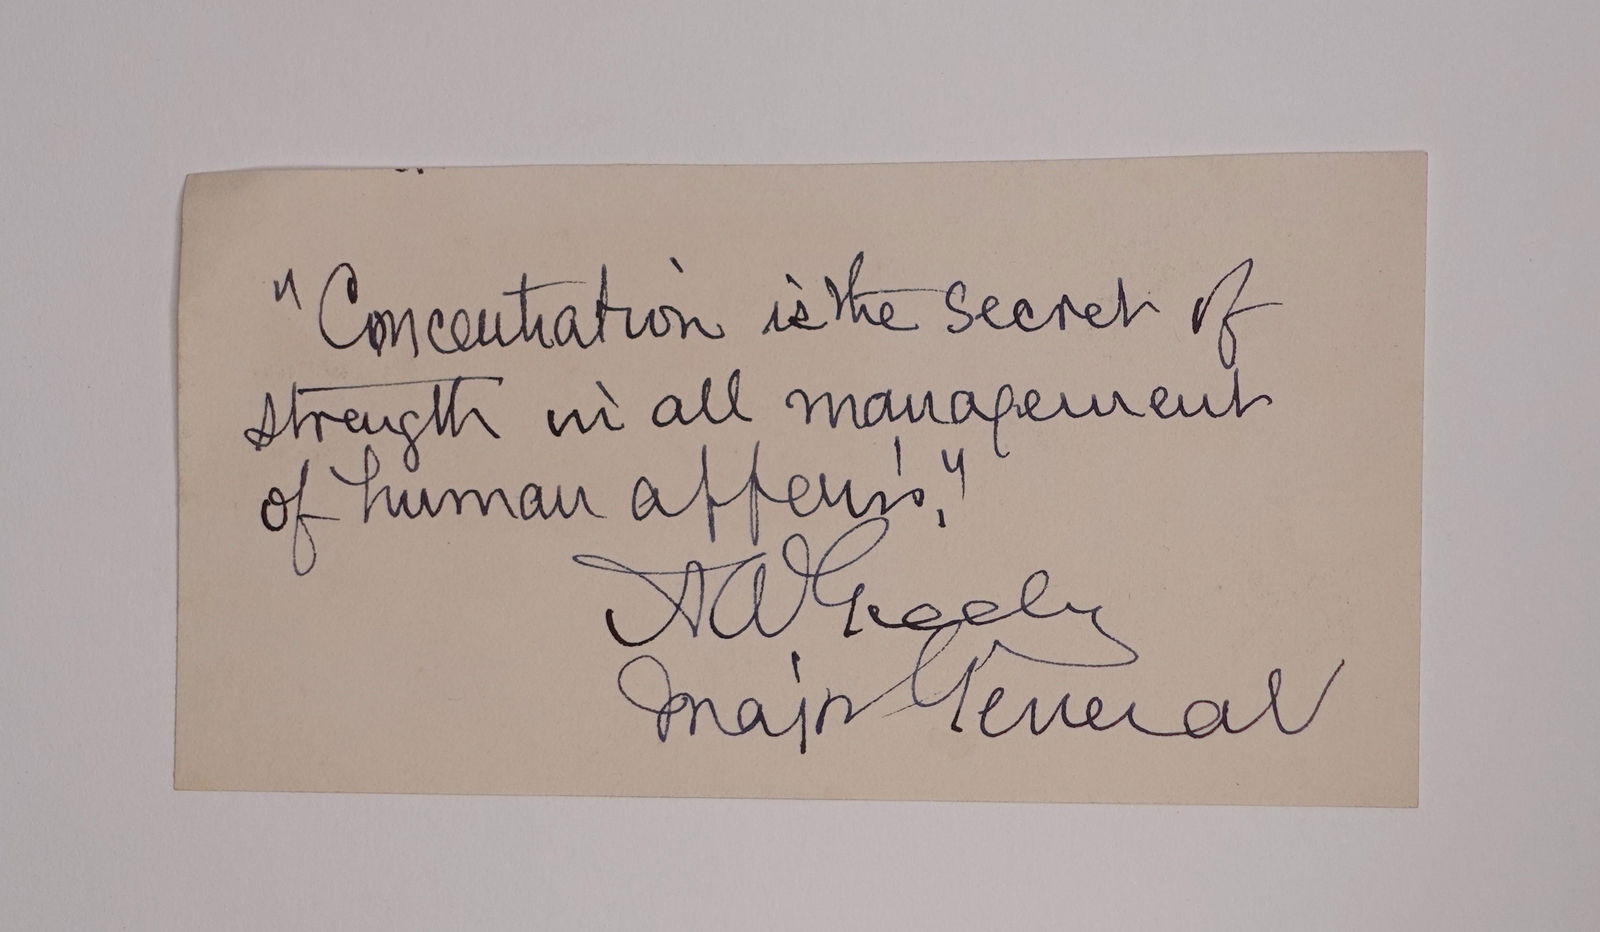 "Concentration is the secret of
strength in all management
of human affairs."
A W Greely
Major General